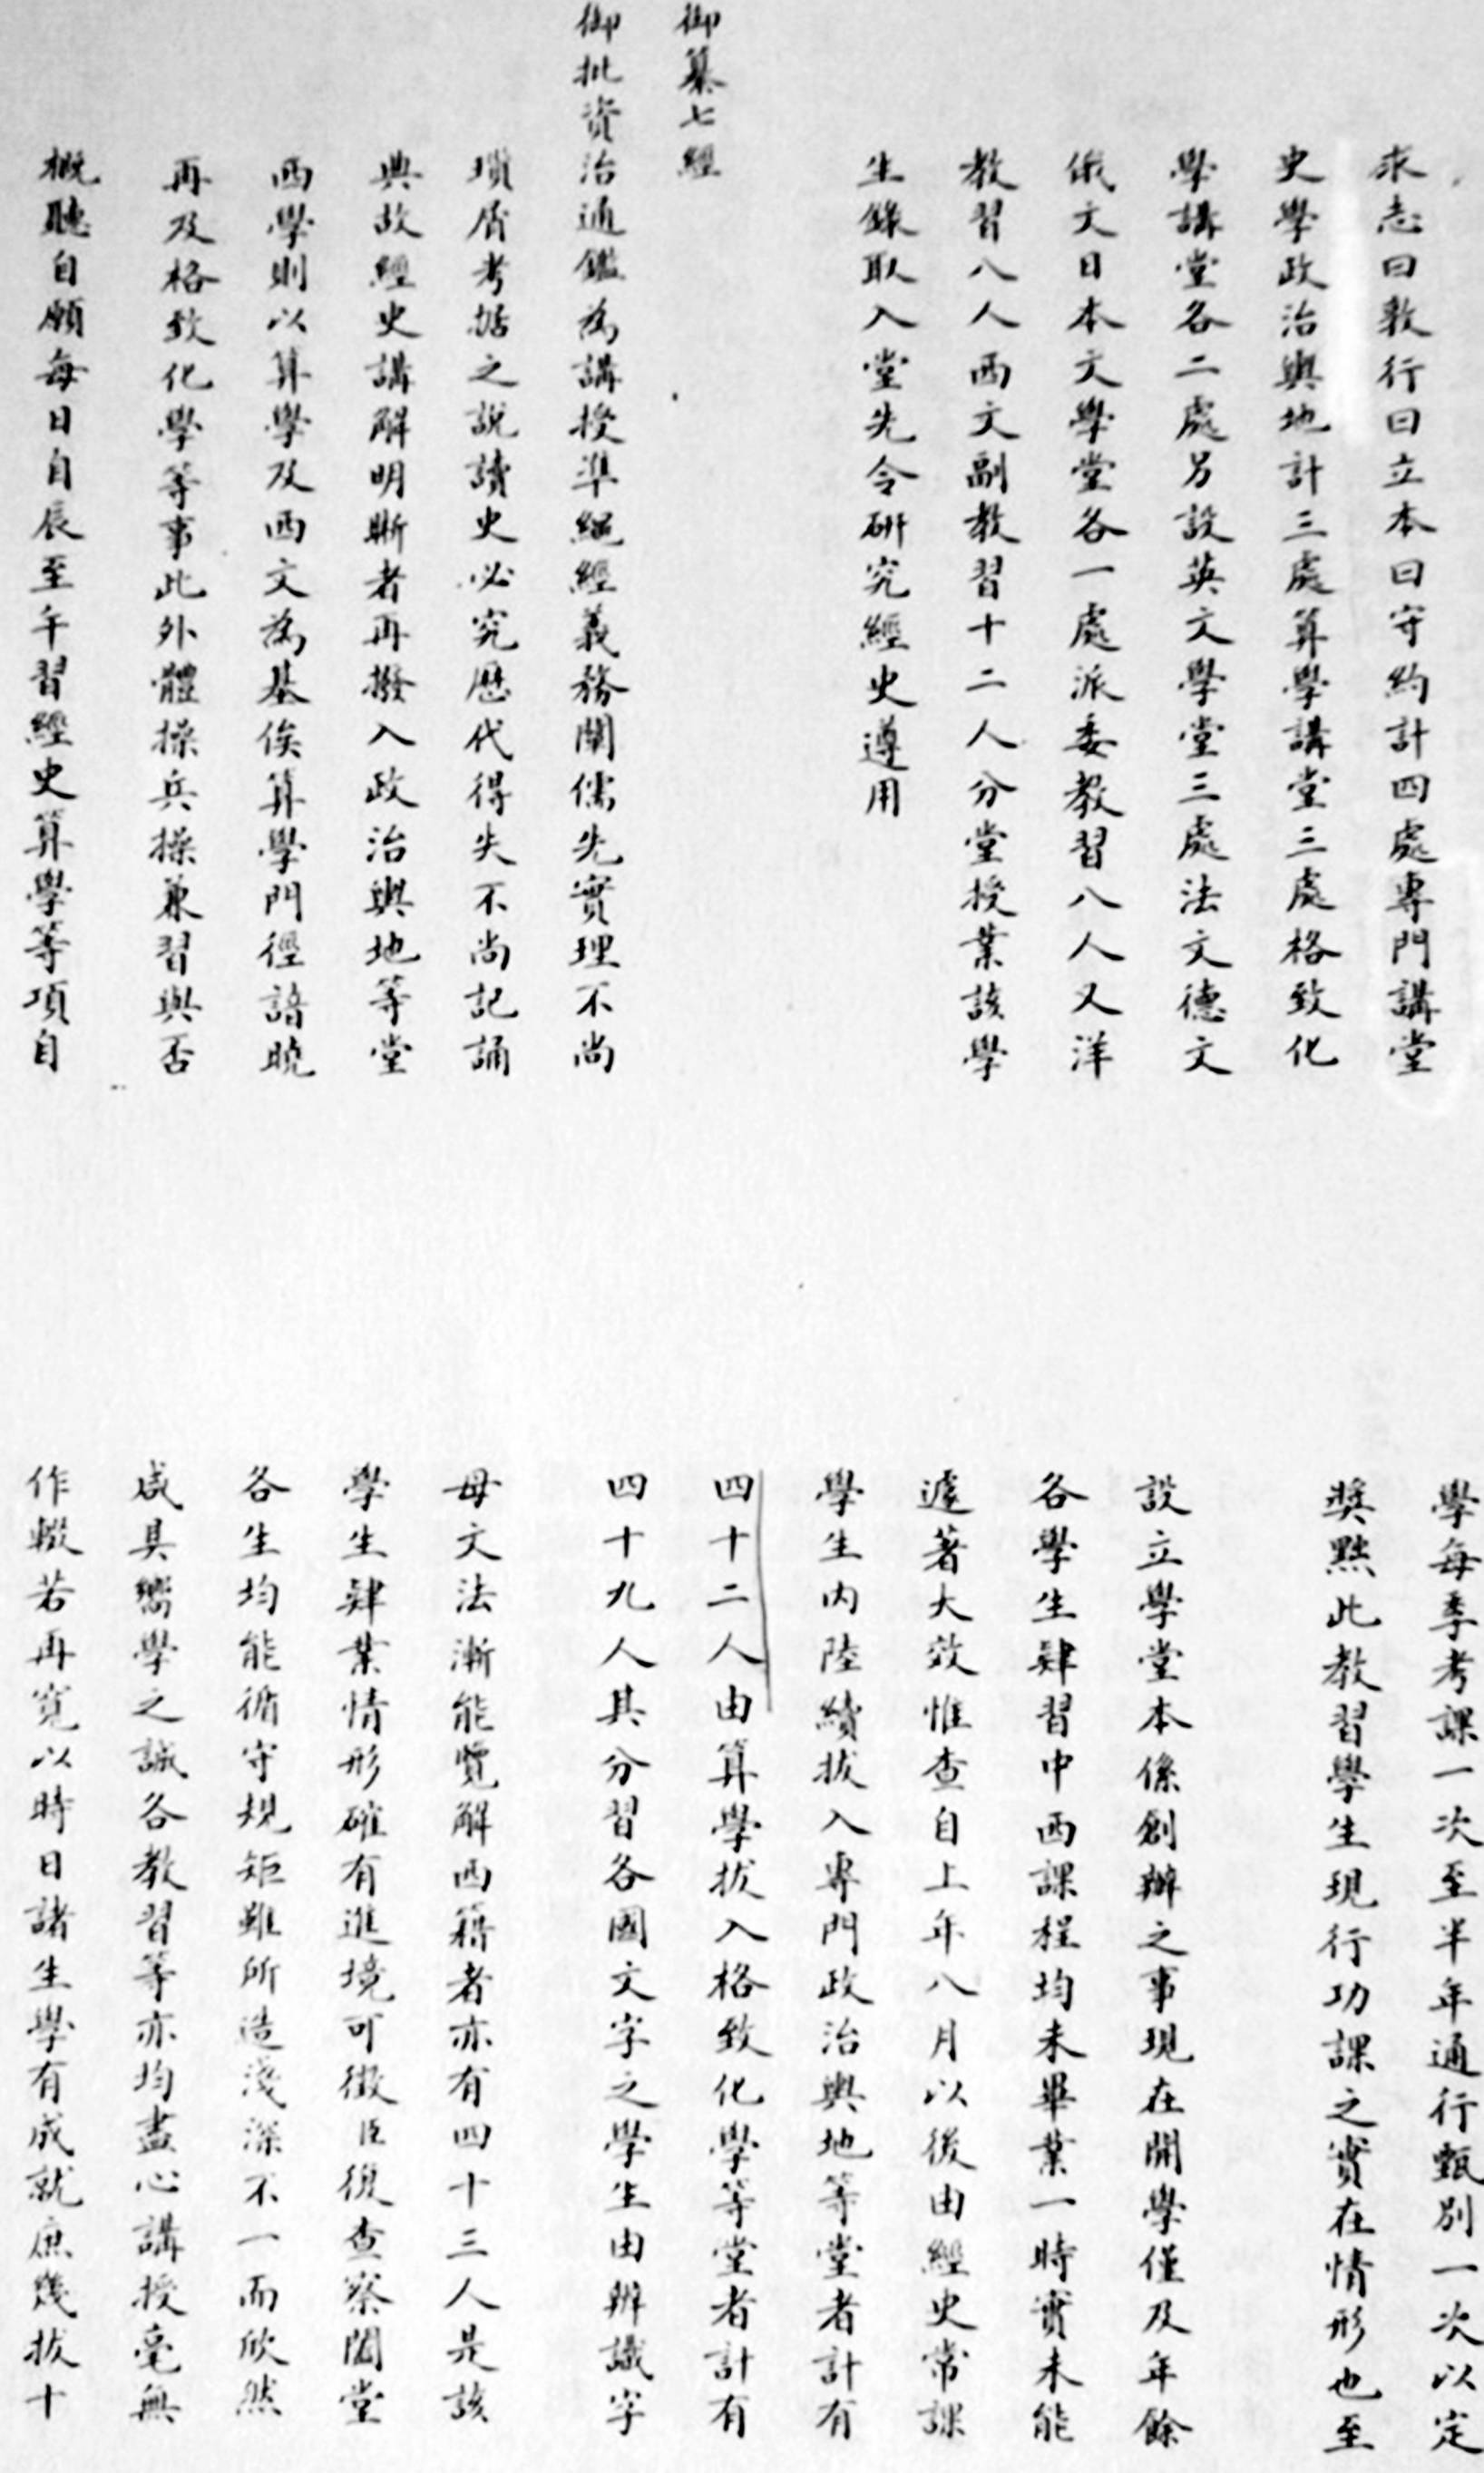 求志曰敦行曰立本曰守約計四處專門講堂
史學政治輿地計三處算學講堂三處格致化
學講堂各二處另設英文學堂三處法文德文
俄文日本文學堂各一處派委教習八人又洋
教習八人西文副教習十二人分堂授業該學
生錄取入堂先令研究經史遵用
御纂七經
御批資治通鑑為講授準繩經義務闡儒先實理不尚
瑣屑考据之說讀史必究歷代得失不尚記誦
典故經史講解明晰者再撥入政治輿地等堂
西學則以算學及西文為基俟算學門徑諳曉
再及格致化學等事此外體操兵操兼習與否
概聽自願每日自辰至午習經史算學等項自
學每季考課一次至半年通行甄別一次以定
獎黜此教習學生現行功課之實在情形也至
設立學堂本係創辦之事現在開學僅及年餘
各學生肄習中西課程均未畢業一時實未能
遽著大效惟查自上年八月以後由經史常課
學生內陸續拔入專門政治輿地等堂者計有
四十二人由算學拔入格致化學等堂者計有
四十九人其分習各國文字之學生由辨識字
母文法漸能覽解西籍者亦有四十三人是該
學生肄業情形確有進境可徵臣復查察闔堂
各生均能循守規矩雖所造淺深不一而欣然
咸具嚮學之誠各教習等亦均盡心講授毫無
作輟若再寬以時日諸生學有成就庶幾拔十